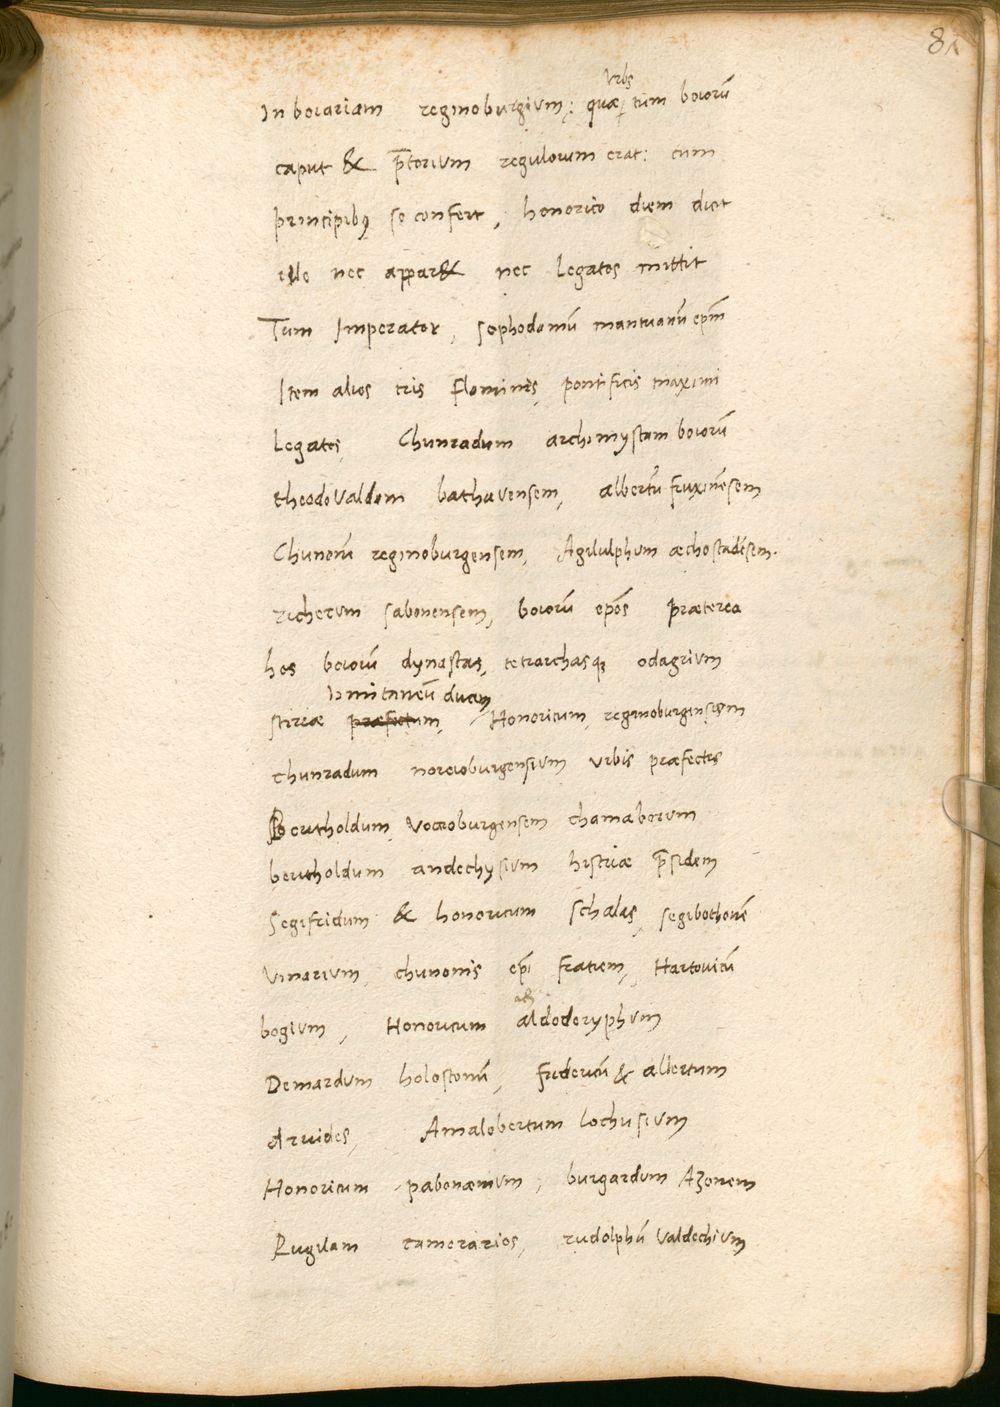 81
urbs
In boiariam reginoburgium; quæ tum boiorū
caput & p̄torium regulorum erat: cum
principibꝰ se confert, honorico diem dicit
ille nec appar& nec legatos mittit
Tum Imperator, sophodomū mantuanū epm̄
Item alios tris flamines, pontificis maximi
legatos, Chunradum archimystam boiorū
theodovaldom bathavensem, albertū fruxinēsem
Chunonē reginoburgensem, Agilulphum æchostadēsem.
richerum sabonensem, boiorū epōs præterea
hos boiorū dynastas, tetrarchasqꝫ odagrium
limitaneū ducem
stiriæ præfectum, Honoricum reginoburginsem
chunradum noreioburgensium urbis præfectos
Bertholdum vocroburgensem chamaborum
bertholdum andechysium histriæ p̄sidem
Segifridum & honoricum schalas, segibothonē
vinarium chunonis epī fratrem, Hartovicū
bogium, Honoricum aldodoryphum
Demardum holostonū, fridericū & albertum
Aruides, Amalobertum lochusium
Honoricum pabonæmum, burgardum Azonem
Rugilam camerarios, rudolphū Valdechium